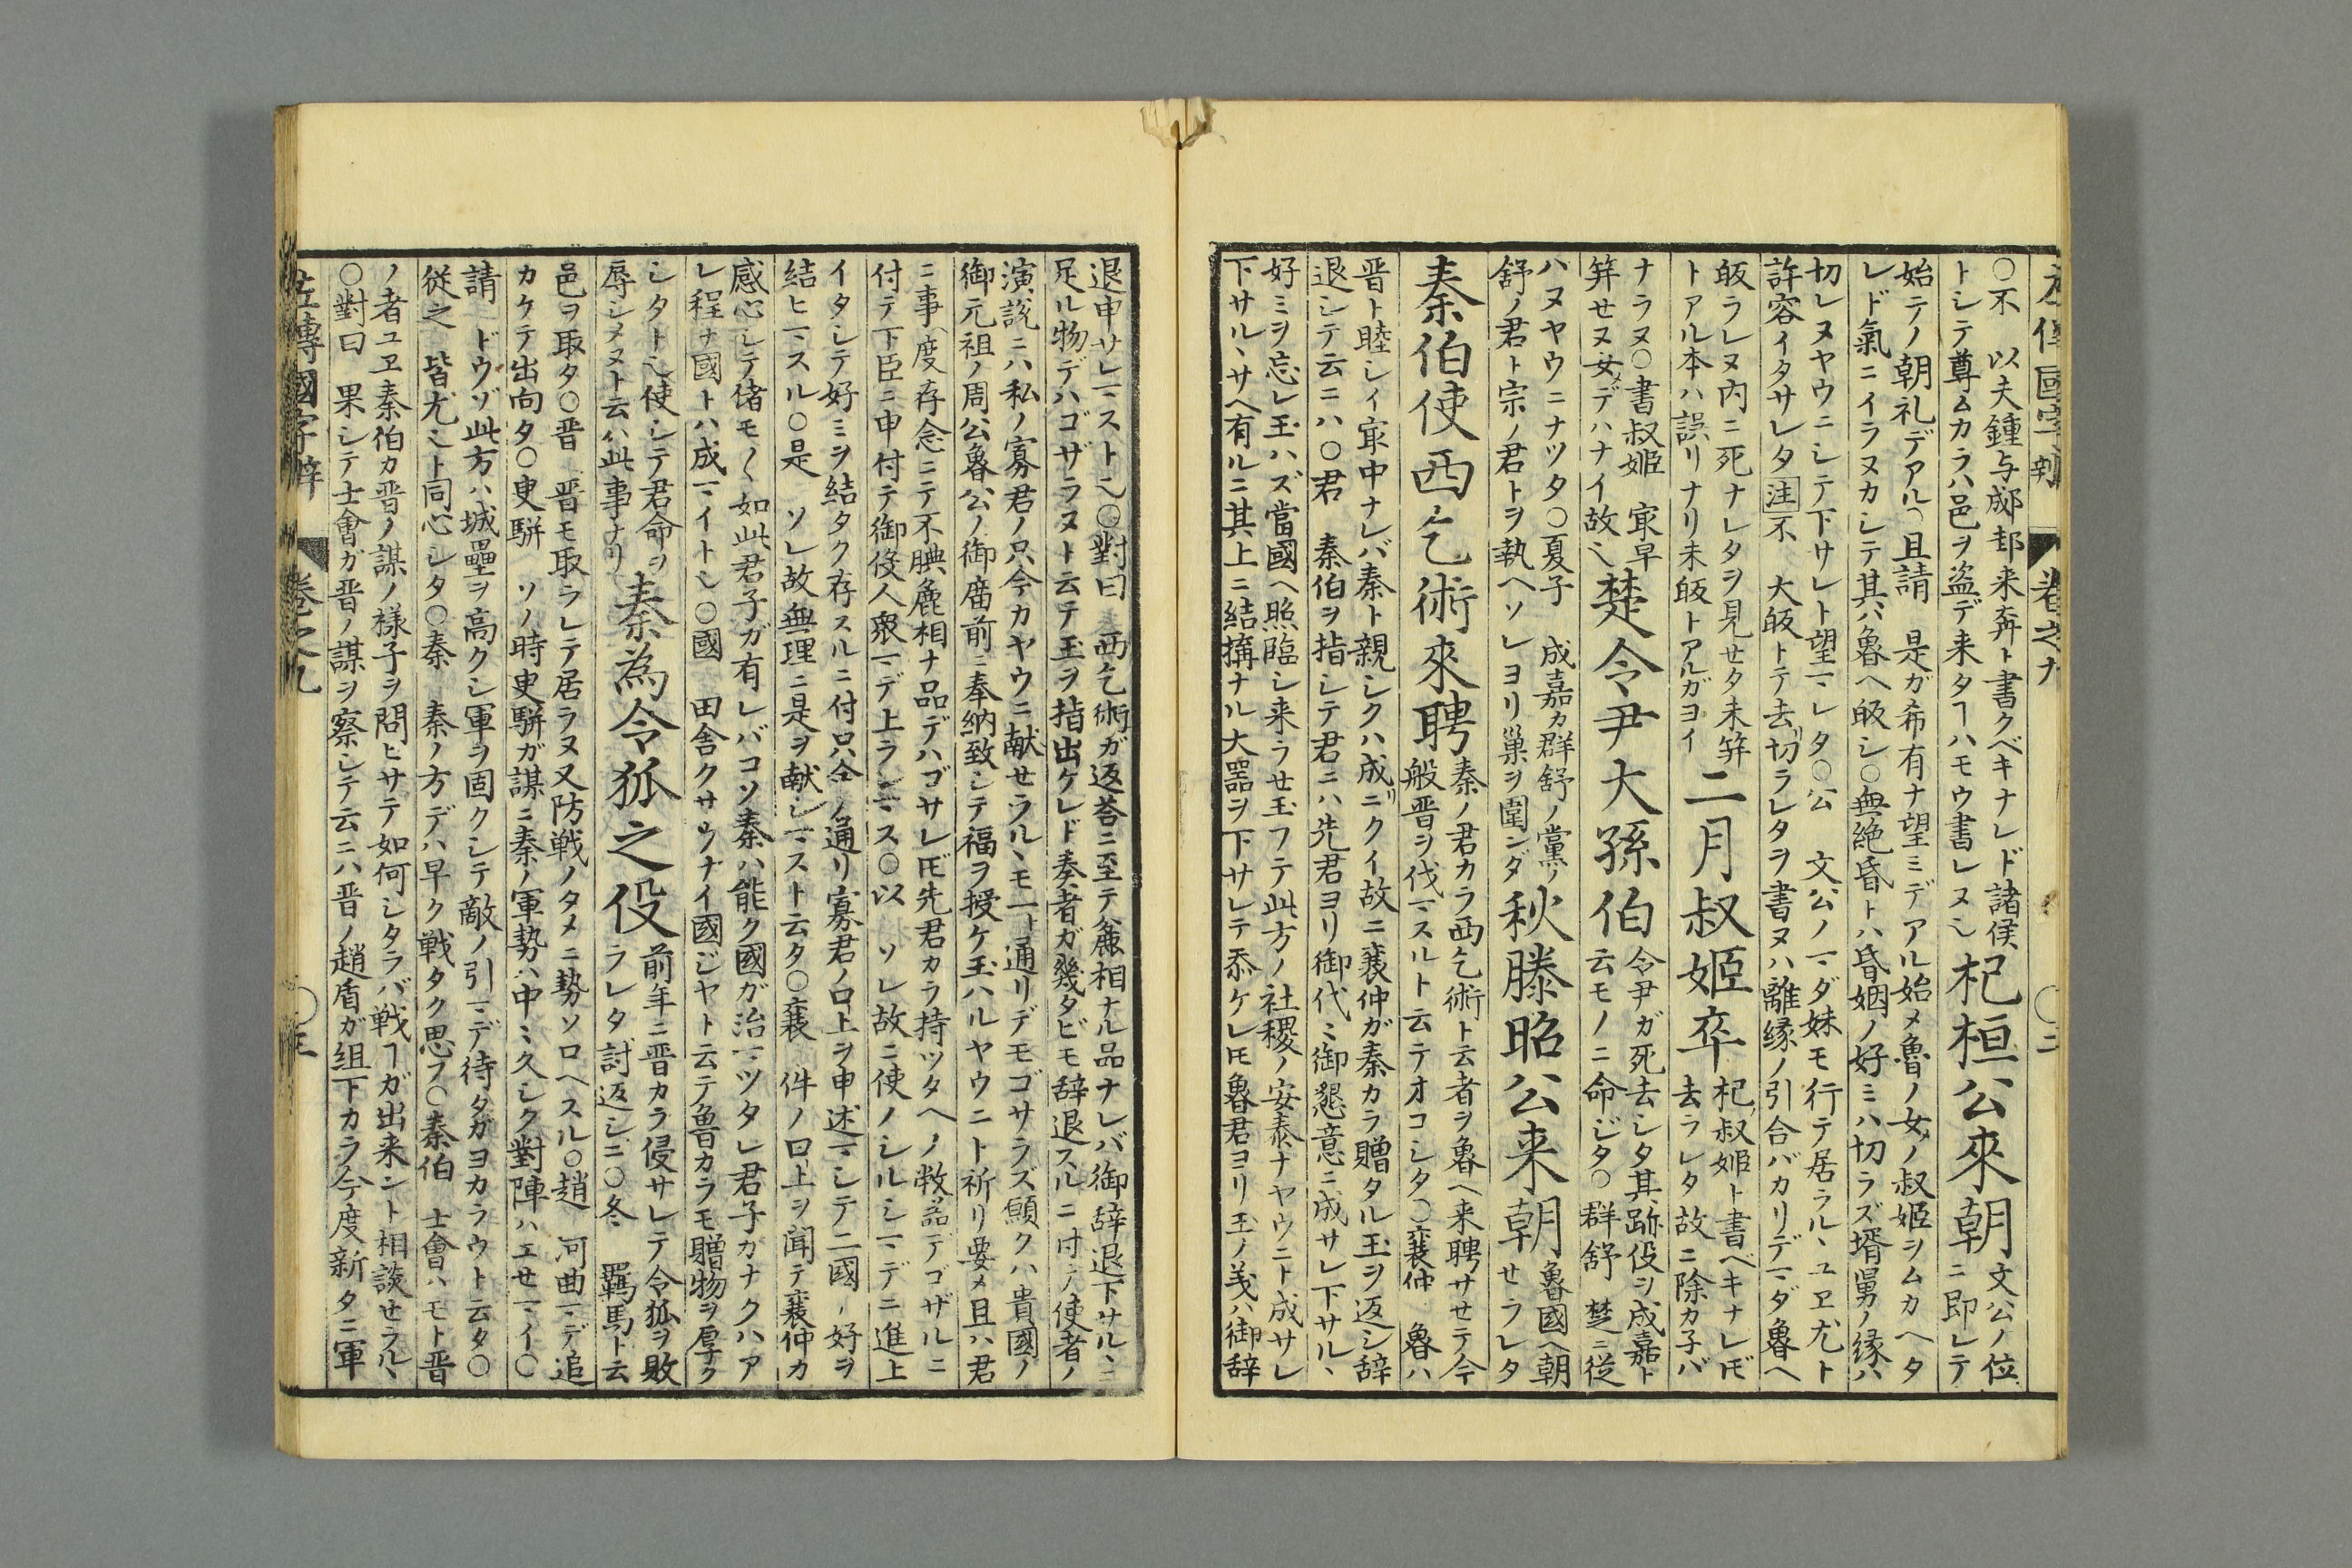 左傳國字辯 卷之九 〇二
〇不 以夫鍾与郕邽来奔ト書クベキナレド諸侯
トシテ尊ムカラハ邑ヲ盗デ来タヿハモウ書レヌ乀
杞桓公來朝
文公ノ位
ニ即レテ
始テノ朝礼デアル〇且請 是ガ希有ナ望ミデアル始メ魯ノ女ノ叔姫ヲムカヘタ
レド氣ニイラヌカシテ其ハ魯ヘ皈シ〇無絶昏トハ昏姻ノ好ミハ切ラズ壻舅ノ縁ハ
切レヌヤウニシテ下サレト望マレタ〇公 文公ノマダ妹モ行テ居ラルヽユヱ尤ト
許容イタサレタ注不 大皈トテ去切ラレタヲ書ヌハ離縁ノ引合バカリデマダ魯ヘ
皈ラレヌ内ニ死ナレタヲ見せタ未笄
トアル本ハ誤リナリ未皈トアルガヨイ
二月叔姫卒
杞叔姫ト書ベキナレ𪜈
去ラレタ故ニ除カ子バ
ナラヌ〇書叔姫 㝡早
笄せヌ女デハナイ故乀
楚令尹大孫伯
令尹ガ死去シタ其跡役ヲ成嘉ト
云モノニ命ジタ〇群舒 楚ニ従
ハヌヤウニナツタ〇夏子 成嘉カ群舒ノ黨ノ
舒ノ君ト宗ノ君トヲ執ヘソレヨリ巢ヲ圍ンダ
秋滕昭公来朝
魯國ヘ朝
せラレタ
秦伯使西乞術來聘
秦ノ君カラ西乞術ト云者ヲ魯ヘ来聘サせテ今
般晋ヲ伐マスルト云テオコシタ〇襄仲 魯ハ
晋ト睦シイ㝡中ナレバ秦ト親シクハ成リニクイ故ニ襄仲ガ秦カラ贈タル玉ヲ返シ辞
退シテ云ニハ〇君 秦伯ヲ指シテ君ニハ先君ヨリ御代々御懇意ニ成サレ下サルヽ
好ミヲ忘レ玉ハズ當國ヘ照臨シ来ラせ玉フテ此方ノ社稷ノ安泰ナヤウニト成サレ
下サルヽサヘ有ルニ其上ニ結搆ナル大噐ヲ下サレテ忝ケレ𪜈魯君ヨリ玉ノ義ハ御辞
退申サレマスト乀〇對曰 西乞術ガ返荅ニ至テ麁相ナル品ナレバ御辞退下サルヽニ
足ル物デハゴザラヌト云テ玉ヲ指出ケレド奏者ガ幾タビモ辞退スルニ付テ使者ノ
演説ニハ私ノ寡君ノ只今カヤウニ献せラルヽモ一ト通リデモゴサラズ顯クハ貴國ノ
御元祖ノ周公魯公ノ御庿前ニ奉納致シテ福ヲ授ケ玉ハルヤウニト祈リ要メ且ハ君
ニ事ヘ度存念ニテ不腆麁相ナ品デハゴサレ𪜈先君カラ持ツタヘノ敝噐デゴザルニ
付テ下臣ニ申付テ御役人衆マデ上ランマス〇以 ソレ故ニ使ノシルシマデニ進上
イタシテ好ミヲ結タク存スルニ付只今ノ通リ寡君ノ口上ヲ申述マシテ二國ノ好ヲ
結ヒマスル〇是 ソレ故無理ニ是ヲ献シマスト云タ〇襄 件ノ口上ヲ聞テ襄仲カ
感心シテ偖モ〱如此君子ガ有レバコソ秦ハ能ク國ガ治マツタレ君子カナクハア
レ程ナ國トハ成マイト乀〇國 田舎クサウナイ國ジヤト云テ魯カラモ贈物ヲ厚ク
シタト乀使シテ君命ヲ
辱シメヌト云ハ此事ナリ
秦為令狐之役
前年ニ晋カラ侵サレテ令狐ヲ敗
ラレタ討返シニ〇冬 羈馬ト云
邑ヲ取タ〇晋 晋モ取ラレテ居ラヌ又防戦ノタメニ勢ソロヘスル〇趙 河曲マデ追
カケテ出向タ〇史駢 ソノ時史駢ガ謀ニ秦ノ軍勢ハ中々久シク對陣ハエせマイ〇
請 ドウゾ此方ハ城壘ヲ高クシ軍ヲ固クシテ敵ノ引マデ待タガヨカラウト云タ〇
従之 皆尤ミト同心シタ〇秦 秦ノ方デハ早ク戦タク思フ〇秦伯 士會ハモト晋
ノ者ユヱ秦伯カ晋ノ謀ノ様子ヲ問ヒサテ如何シタラバ戦ヿガ出来ント相談せラルヽ
〇對曰 果シテ士會ガ晋ノ謀ヲ察シテ云ニハ晋ノ趙盾ガ組下カラ今度新タニ軍
左傳國字辯 卷之九 〇三